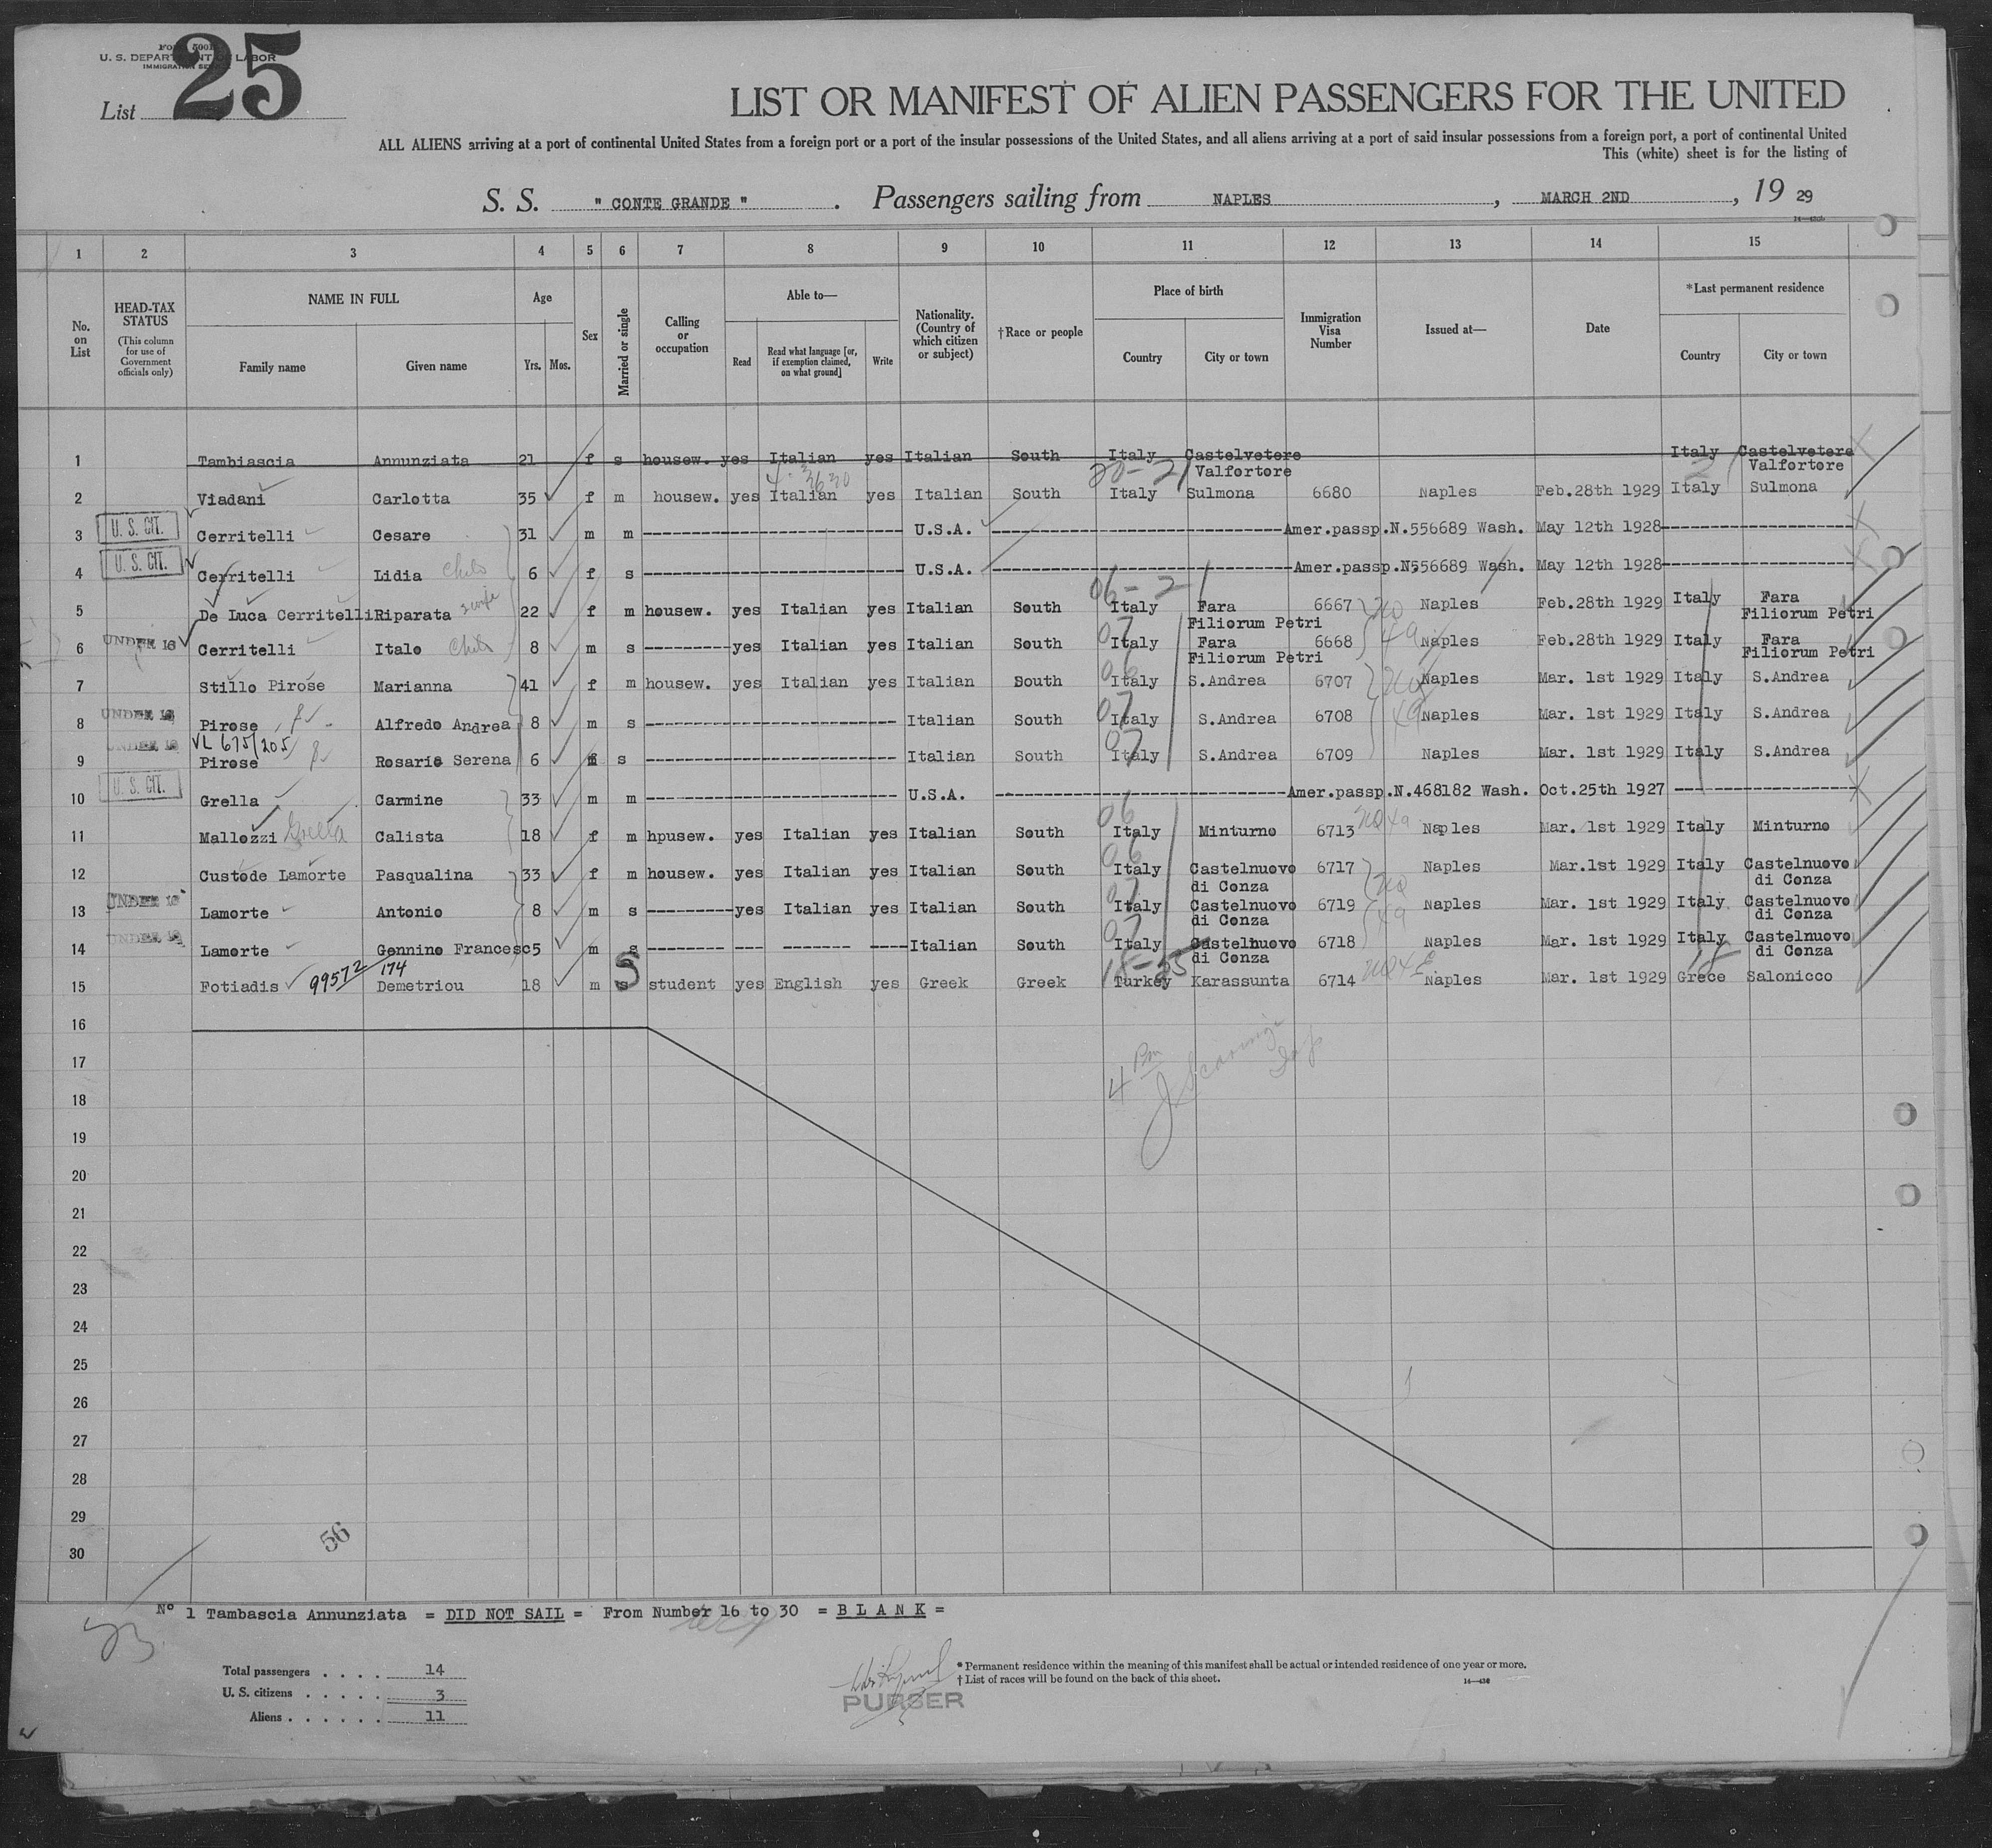 FORM 500
U. S. DEPARTMENT OF LABOR
IMMIGRATION SERVICE
List 25
LIST OR MANIFEST OF ALIEN PASSENGERS FOR THE UNITED
ALL ALIENS arriving at a port of continental United States from a foreign port or a port of the insular possessions of the United States, and all aliens arriving at a port of said insular possessions from a foreign port, a port of continental United
This (white) sheet is for the listing of
S. S. " CONTE GRANDE " . Passengers sailing from NAPLES , MARCH 2ND , 19 29
1 2 3 4 5 6 7 8 9 10 11 12 13 14 15
No. on List
HEAD-TAX STATUS (This column for use of Government officials only)
NAME IN FULL Family name Given name
Age Yrs. Mos.
Sex
Married or single
Calling or occupation
Able to— Read Read what language [or, if exemption claimed, on what ground] Write
Nationality. (Country of which citizen or subject)
†Race or people
Place of birth Country City or town
Immigration Visa Number
Issued at—
Date
*Last permanent residence Country City or town
1 Tambiascia Annunziata 21 f s housew. yes Italian yes Italian South Italy Castelvetere Valfortore Italy Castelvetere Valfortore
2 Viadani Carlotta 35 f m housew. yes Italian yes Italian South Italy Sulmona 6680 Naples Feb.28th 1929 Italy Sulmona
3 U. S. CIT. Cerritelli Cesare 31 m m U.S.A. Amer.passp.N.556689 Wash. May 12th 1928
4 U. S. CIT. Cerritelli Lidia Child 6 f s U.S.A. Amer.passp.N556689 Wash. May 12th 1928
5 De Luca Cerritelli Riparata wife 22 f m housew. yes Italian yes Italian South Italy Fara Filiorum Petri 6667 Naples Feb.28th 1929 Italy Fara Filiorum Petri
6 UNDER 16 Cerritelli Italo Child 8 m s yes Italian yes Italian South Italy Fara Filiorum Petri 6668 Naples Feb.28th 1929 Italy Fara Filiorum Petri
7 Stillo Pirose Marianna 41 f m housew. yes Italian yes Italian South Italy S.Andrea 6707 Naples Mar. 1st 1929 Italy S.Andrea
8 UNDER 16 Pirose Alfredo Andrea 8 m s Italian South Italy S.Andrea 6708 Naples Mar. 1st 1929 Italy S.Andrea
VL 675/205
9 UNDER 16 Pirose Rosario Serena 6 s Italian South Italy S.Andrea 6709 Naples Mar. 1st 1929 Italy S.Andrea
10 U. S. CIT. Grella Carmine 33 m m U.S.A. Amer.passp.N.468182 Wash. Oct.25th 1927
11 Mallozzi Grella Calista 18 f m hpusew. yes Italian yes Italian South Italy Minturno 6713 Naples Mar. 1st 1929 Italy Minturno
12 Custode Lamorte Pasqualina 33 f m housew. yes Italian yes Italian South Italy Castelnuovo di Conza 6717 Naples Mar.1st 1929 Italy Castelnuovo di Conza
13 UNDER 16 Lamorte Antonio 8 m s yes Italian yes Italian South Italy Castelnuovo di Conza 6719 Naples Mar. 1st 1929 Italy Castelnuovo di Conza
14 UNDER 16 Lamorte Gennino Francesc 5 m s Italian South Italy Castelnuovo di Conza 6718 Naples Mar. 1st 1929 Italy Castelnuovo di Conza
99572 174
15 Fotiadis Demetriou 18 m S student yes English yes Greek Greek Turkey Karassunta 6714 Naples Mar. 1st 1929 Grece Salonicco
16
17
18
19
20
21
22
23
24
25
26
27
28
29
30
56
Nº 1 Tambascia Annunziata = DID NOT SAIL = From Number 16 to 30 = B L A N K =
Total passengers . . . . 14
U. S. citizens . . . . . 3
Aliens . . . . . . 11
PURSER
* Permanent residence within the meaning of this manifest shall be actual or intended residence of one year or more.
† List of races will be found on the back of this sheet.
14—430